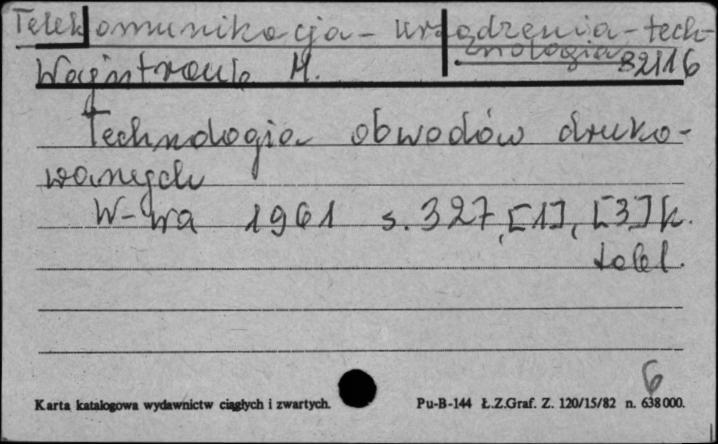 Telekomunikacja - urządzenia - tech-
nologia
Wajntraub M. 82116
Technologia obwodów druko-
wanych
W-wa 1961 s. 327, [1], [3] k.
tabl.
6
Karta katalogowa wydawnictw ciągłych i zwartych. Pu-B-144 Ł.Z.Graf. Z. 120/15/82 n. 638 000.